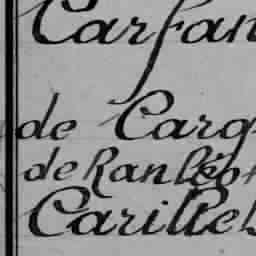 Carfan
de Carg
de Ranléo
Carille